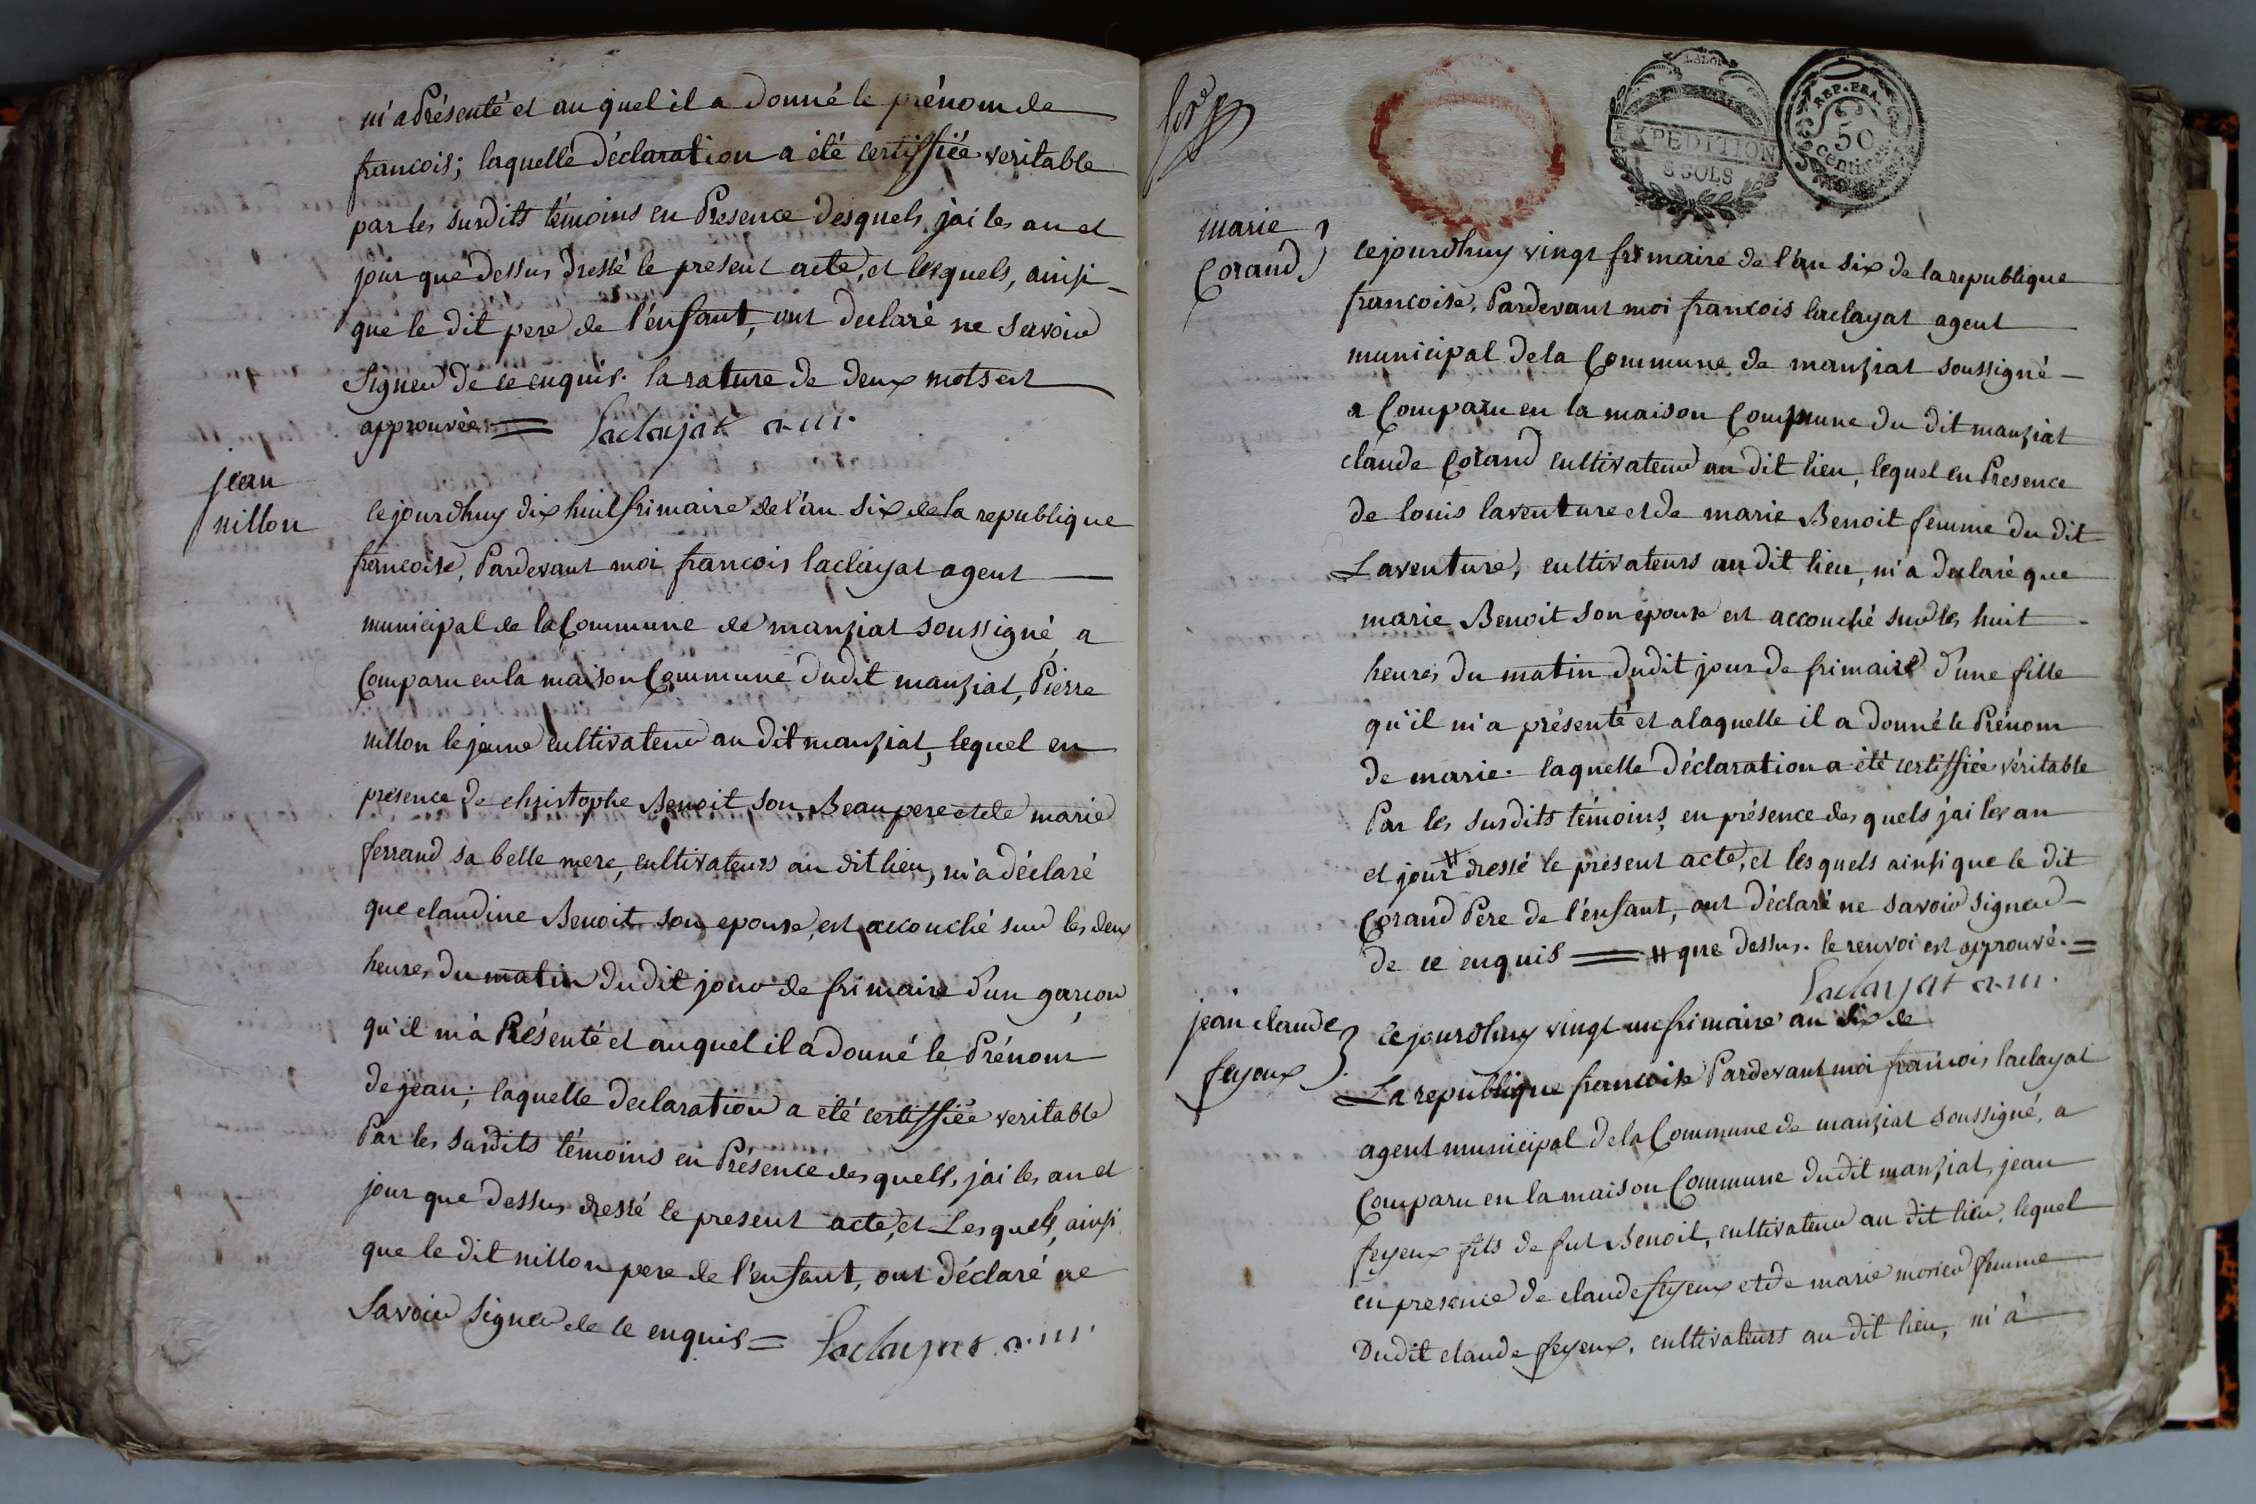 m'a Présenté et au quel il a donné le prénom de
francois; laquelle déclaration a été certiffiée veritable
par les surdits témoins en Presence desquels j'ai les an et
jour que dessus dressé le present acte, et lesquels, ainsi
que le dit pere de l'enfant, ont declaré ne savoir
signer de ce enquis. la rature de deux mots est
approuvée = laclayat a.m.
jean
nillon
cejourdhuy dix huit frimaire de l'an six de la republique
francoise, Pardevant moi francois laclayat agent
municipal de la Commune de manziat soussigné, a
Comparu en la maison Commune dudit manziat, Pierre
nillon le jeune cultivateur au dit manziat, lequel en
présence de christophe Benoit son Beau pere et de marie
ferrand sa belle mere, cultivateurs au dit lieu, m'a déclaré
que claudine Benoit son epouse, est accouché sur les deux
heures du matin dudit jour de frimaire d'un garcon
qu'il m'a Présenté et auquel il a donné le Prénom
de jean; laquelle declaration a été certiffiée veritable
Par les surdits témoins en Présence desquels, j'ai les an et
jour que dessus dressé le present acte, et Lesquels, ainsi
que le dit nillon pere de l'enfant, ont déclaré ne
Savoir signer de ce enquis = laclayat a.m.
marie
Corand
EXPEDITION
8 SOLS
REP. FRA.
50
Centimes
cejourdhuy vingt frimaire de l'an six de la republique
francoise, Pardevant moi francois laclayat agent
municipal dela Commune de manziat soussigné
a Comparu en la maison Commune du dit manziat
claude Corand cultivateur au dit lieu, lequel en Presence
de louis laventure et de marie Benoit femme du dit
Laventure, cultivateurs au dit lieu, m'a declaré que
marie Benoit son epouse est accouché sur les huit
heures du matin dudit jour de frimaire d'une fille
qu'il m'a présenté et a laquelle il a donné le Prénom
de marie. laquelle déclaration a été certiffiée véritable
Par les surdits témoins, en présence des quels j'ai les an
et jour # dressé le présent acte, et lesquels ainsi que le dit
Corand Père de l'enfant, ont déclaré ne savoir signer
de ce enquis = # que dessus. le renvoi est approuvé. =
laclayat a.m.
jean claude
feyeux
cejourdhuy vingt un frimaire an six de
La republique francoise Pardevant moi francois laclayat
agent municipal dela Commune de manziat soussigné, a
Comparu en la maison Commune dudit manziat, jean
feyeux fils de fut Benoit, cultivateur au dit lieu, lequel
en presence de claude feyeux et de marie morier femme
Dudit claude feyeux, cultivateurs au dit lieu, m'a